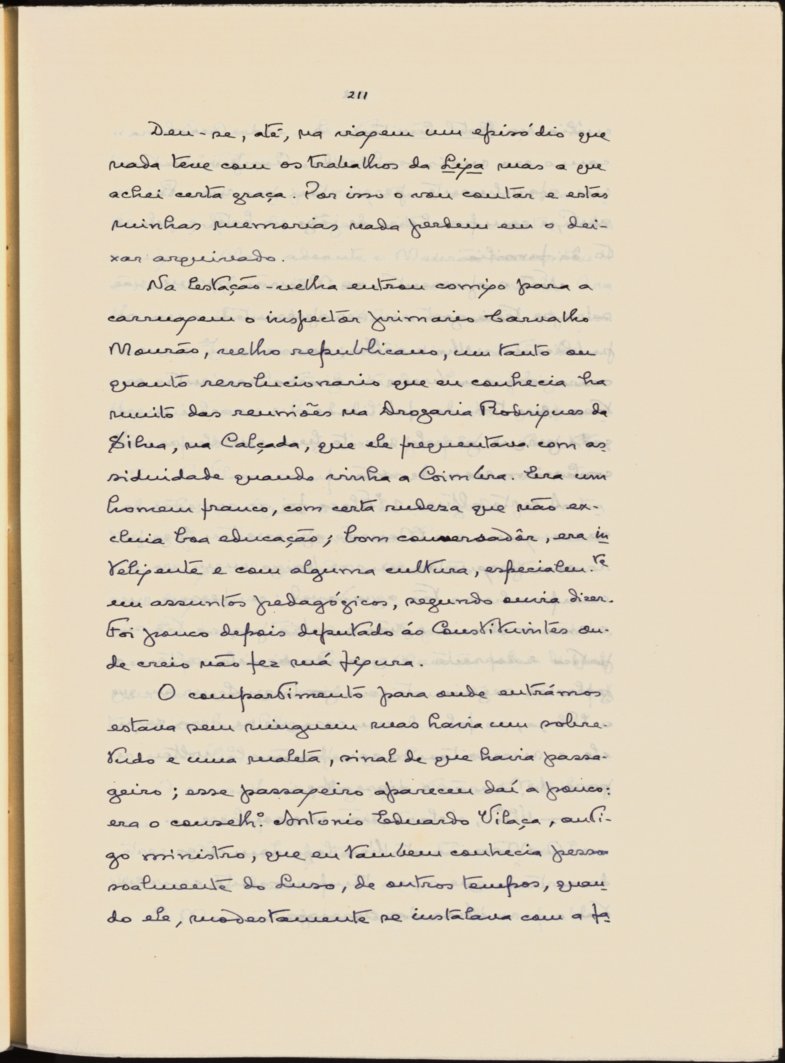 211
Deu-se, até, na viagem um episódio que
nada teve com os trabalhos da Liga mas a que
achei certa graça. Por isso o vou contar e estas
minhas memorias nada perdem em o dei-
xar arquivado.
Na Estação-velha entrou comigo para a
carruagem o inspectôr primario Carvalho
Mourão, velho republicano, um tanto ou
quanto revolucionario que eu conhecia ha
muito das reuniões na Drogaria Rodrigues da
Silva, na Calçada, que ele frequentava com as
siduidade quando vinha a Coimbra. Era um
homem franco, com certa rudeza que não ex-
cluia boa educação; bom conversadôr, era in
teligente e com alguma cultura, especialm.te
em assuntos pedagógicos, segundo ouvia dizer.
Foi pouco depois deputado ás Constituintes on-
de creio não fez má figura.
O compartimento para onde entrámos
estava sem ninguem mas havia um sobre-
tudo e uma maleta, sinal de que havia passa-
geiro; esse passageiro apareceu daí a pouco:
era o conselh.º Antonio Eduardo Vilaça, anti-
go ministro, que eu tambem conhecia pesso
soalmente do Luso, de outros tempos, quan
do ele, modestamente se instalava com a fa